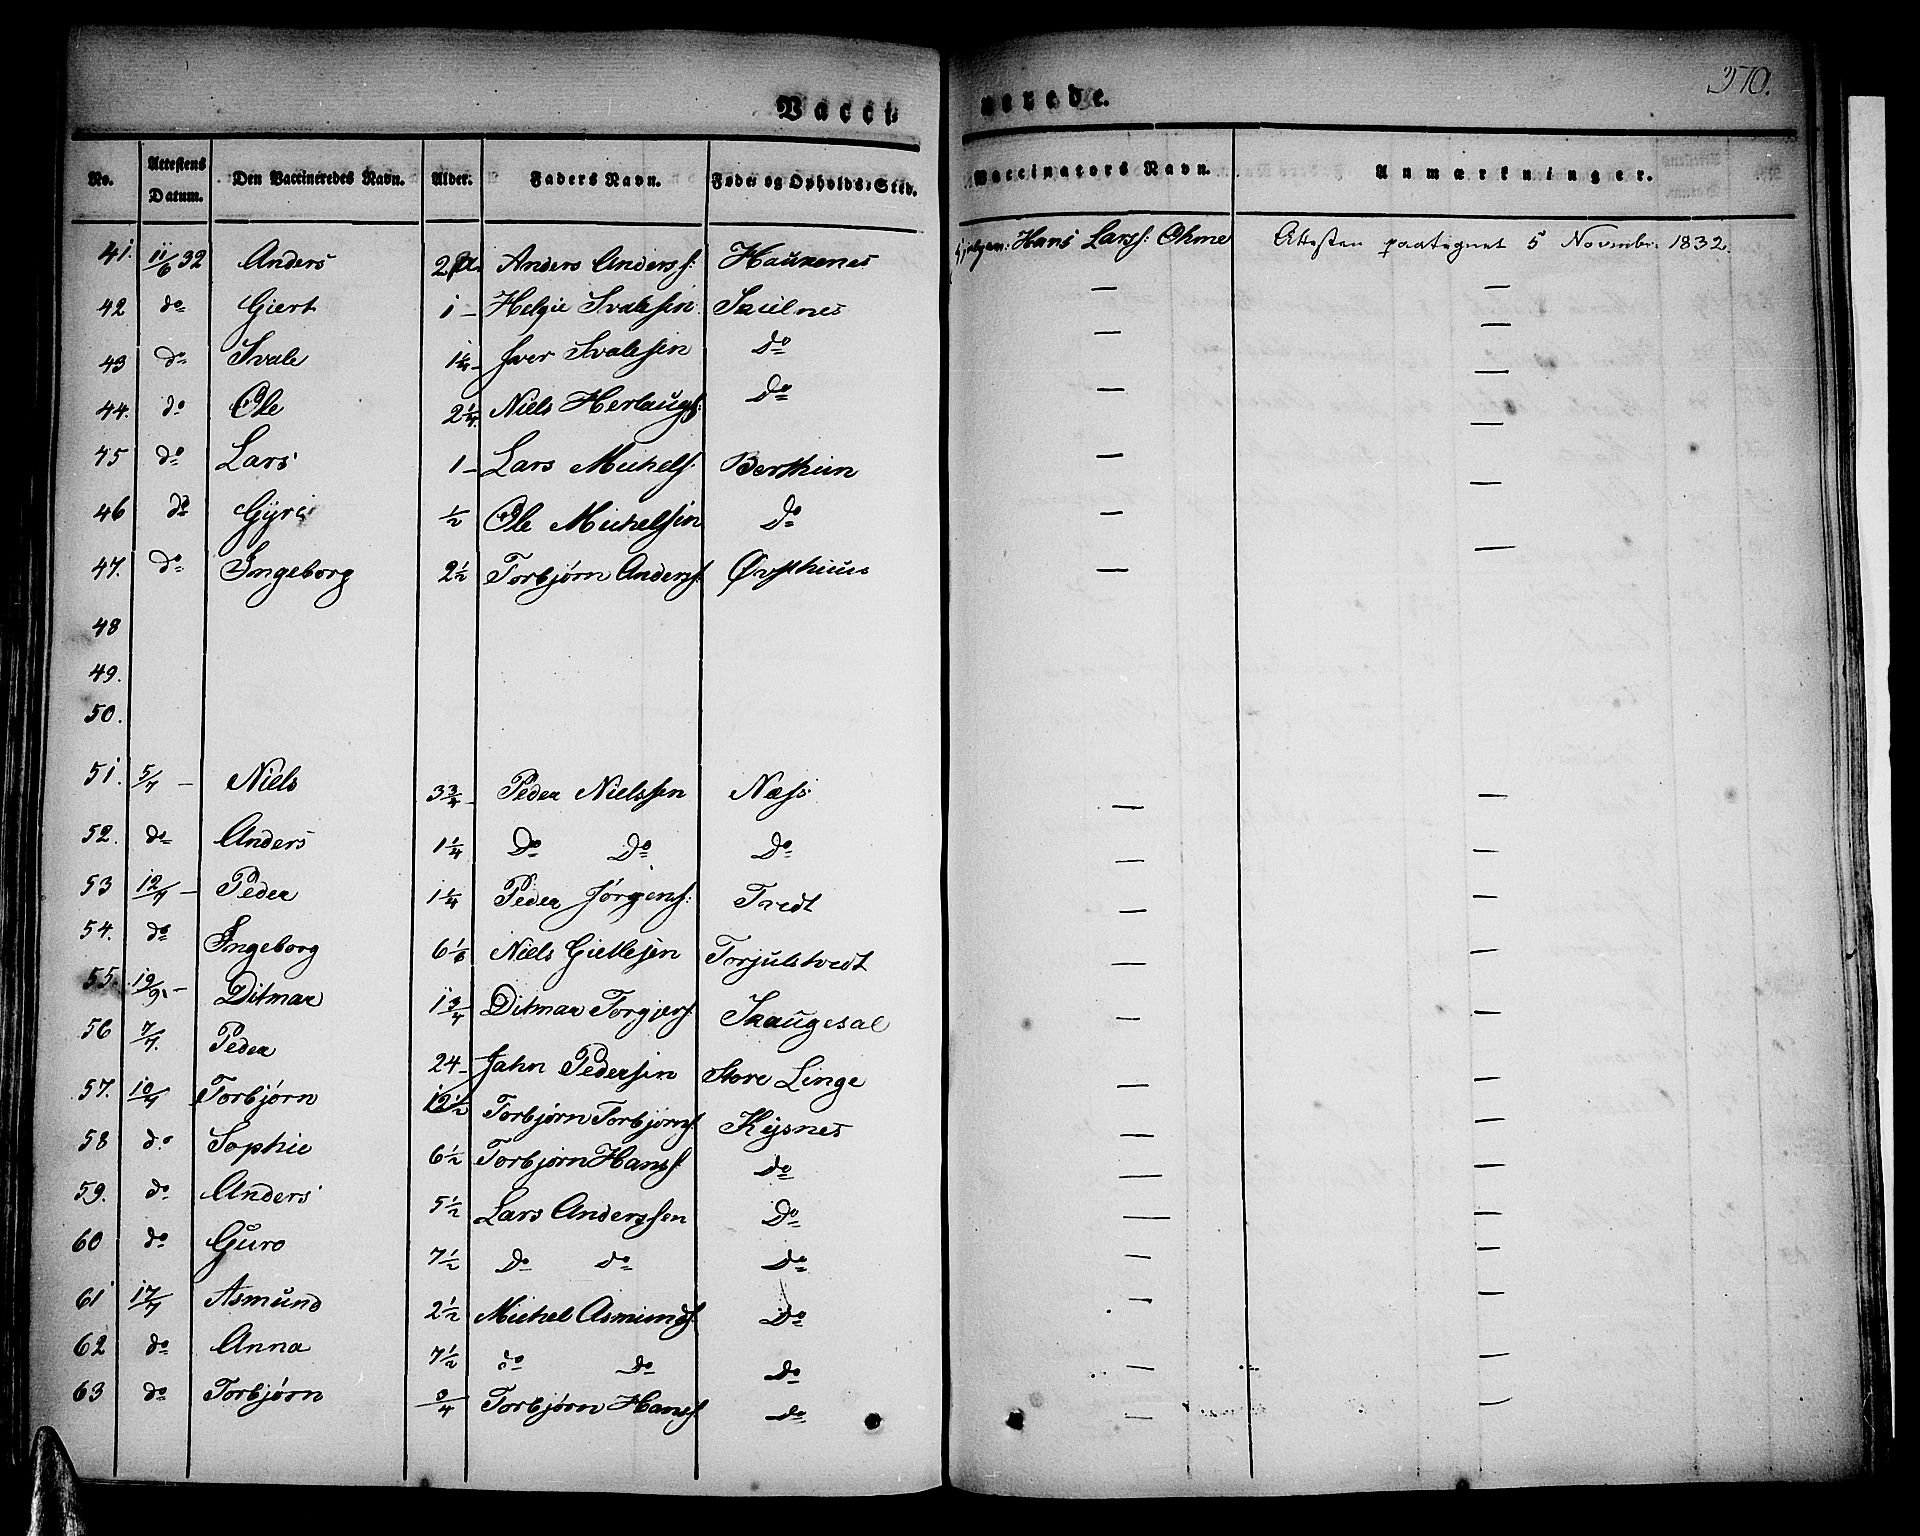 370.
Vacci nerede.
No. Attestens Datum. Den Vaccineredes Navn. Alder. Faders Navn. Føde- og Opholds-Sted. Vaccinators Navn. Anmærkninger.
41. 11/6 32 Anders 2 Anders Anderss: Haukenes Hans Larss: Ohme Attesten paategnet 5 Novembr: 1832.
42 do Giert 1 – Helgie Svalesen Skielnes — —
43 do Svale 1 1/4 – Iver Svalesen Do — —
44. do Ole 2 1/4. Niels Herlaugs: Do — —
45 do Lars 1 – Lars Michels: Berthun — —
46 do Gyri 1/2 Ole Michelsen Do — —
47. do Ingeborg 2 1/2 Torbjørn Anderss: Øvsthuus — —
48
49.
50.
51. 5/7 – Niels 3 3/4 – Peder Nielssen Næss — —
52. do Anders 1 1/4 Do Do Do — —
53 12/7 – Peder 1 1/4 Peder Jørgens: Tvedt — —
54. do Ingeborg 6 1/6 Niels Gietlesen Torjulstvedt — —
55. 19/9. – Ditmar 1 3/4 Ditmar Torgjers: Skaugesal — —
56 7/7. Peder 24 – Jahn Pedersen Store Linge — —
57. 10/7 Torbjørn 12 1/2 Torbjørn Torbjørns: Kysnes — —
58 do Sophie 6 1/2 Torbjørn Hanss: Do — —
59. do Anders 5 1/2 Lars Anderssen Do — —
60 do Guro 7 1/2 Do do Do — —
61 17/7 Asmund 2 1/2 Michel Asmunds: Do — —
62 do Anna 7 1/2 do Do Do — —
63 do Torbjørn 3/4 Torbjørn Hanss: Do — —